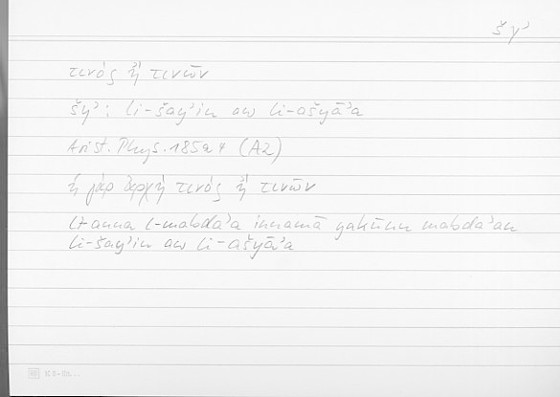 šyʾ
τινός ἢ τινῶν
šyʾ: li-šayʾin aw li-ašyāʾa
Arist. Phys. 185a4 (A2)
ἡ γὰρ ἀρχή τινός ἢ τινῶν
li-anna l-mabdaʾa innamā yakūnu mabdaʾan
li-šayʾin aw li-ašyāʾa